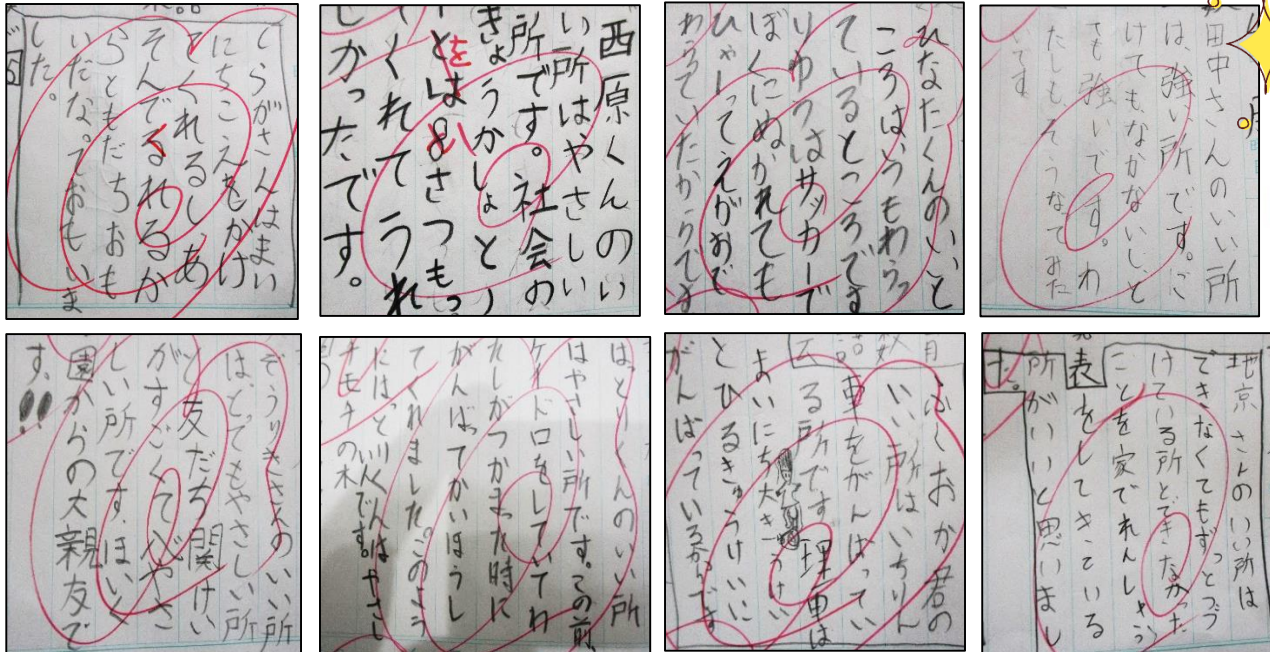 しらがさんはまい
にちこえもかけ
てくれるし、あ
そんでくれるか
らともだちおも
いだな。ておもいま
した。
西原くんのい
い所はやさしい
所です。社会の
きょうかしょと
てくれてうれ
しかったです。
ひなたくんのいいと
ころは、うもわらっ
ているところです
りゆうはサッカーで
ぼくにぬかれても
ひゃーってえがおで
わらっていたからです
田中さんのいい所
は、強い所です。こ
けてもなかないし、と
ても強いです。わ
たしもそうなてみた
いです
さんのいい所
は、とってもやさしい所
と友だち関けい
がすごくてやさ
しい所です、ほいく
園からの大親友で
す、!!
はっとりくんのいい所
はやさしい所です。この前、
ケイドロをしていてわ
たしがつかまった時に
がんばってかいほうし
てくれました。このよう
にはっとりくんはやさし
い人です。
モチモチの木
ふくおか君の
いい所はいちりん
車をがんばってい
る所です理由は
まいにち大き
とひるきゅうけいに
がんばっているからです
地京さんのいい所は
できなくてもずっとつづ
けている所とできたかった
ことを家でれんしゅう
表をしてきている
所がいいと思いまし
た。